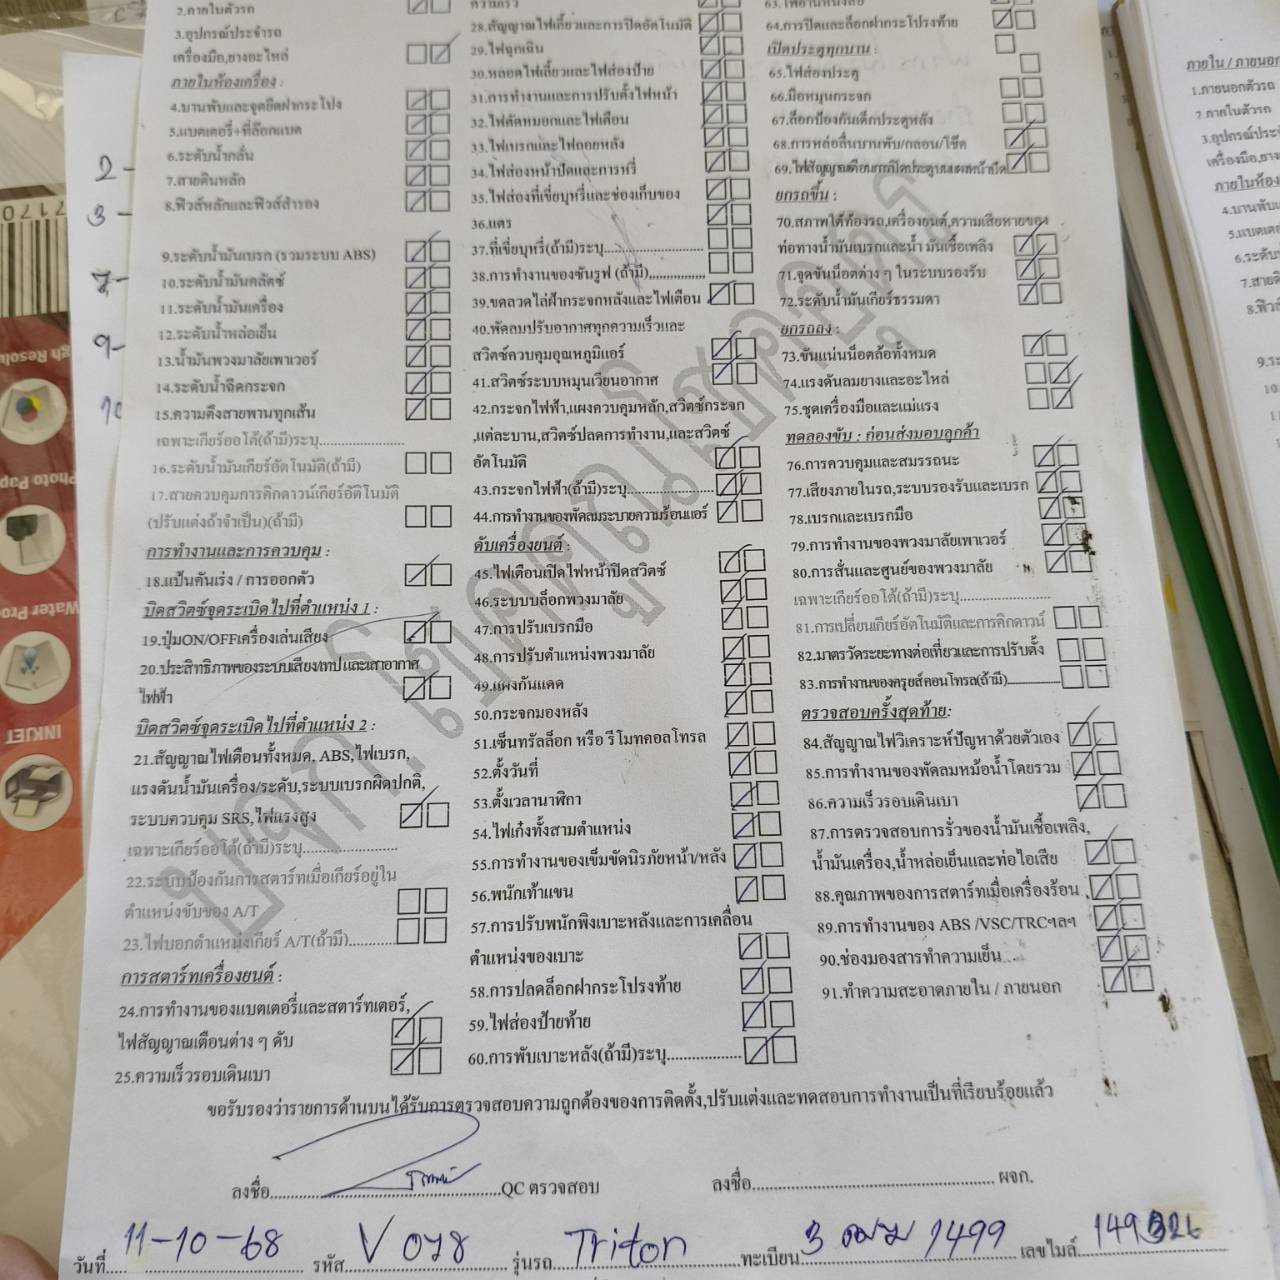 2.ภายในตัวรถ
3.อุปกรณ์ประจำรถ
เครื่องมือ,ยางอะไหล่
ภายในห้องเครื่อง :
4.บานพับและจุดยึดฝากระโปรง
5.แบตเตอรี่+ที่ล็อกแบต
6.ระดับน้ำกลั่น
7.สายดินหลัก
8.ฟิวส์หลักและฟิวส์สำรอง
9.ระดับน้ำมันเบรก (รวมระบบ ABS)
10.ระดับน้ำมันคลัตซ์
11.ระดับน้ำมันเครื่อง
12.ระดับน้ำหล่อเย็น
13.น้ำมันพวงมาลัยเพาเวอร์
14.ระดับน้ำฉีดกระจก
15.ความตึงสายพานทุกเส้น
เฉพาะเกียร์ออโต้(ถ้ามี)ระบุ
16.ระดับน้ำมันเกียร์อัตโนมัติ(ถ้ามี)
17.สายควบคุมการคิกดาวน์เกียร์อัตโนมัติ
(ปรับแต่งถ้าจำเป็น)(ถ้ามี)
การทำงานและการควบคุม :
18.แป้นคันเร่ง / การออกตัว
บิดสวิตซ์จุดระเบิดไปที่ตำแหน่ง 1 :
19.ปุ่มON/OFFเครื่องเล่นเสียง
20.ประสิทธิภาพของระบบเสียง/เทป และเสาอากาศ
ไฟฟ้า
บิดสวิตซ์จุดระเบิดไปที่ตำแหน่ง 2 :
21.สัญญาณไฟเตือนทั้งหมด, ABS,ไฟเบรก,
แรงดันน้ำมันเครื่อง/ระดับ,ระบบเบรกผิดปกติ,
ระบบควบคุม SRS,ไฟแรงสูง
เฉพาะเกียร์ออโต้(ถ้ามี)ระบุ
22.ระบบป้องกันการสตาร์ทเมื่อเกียร์อยู่ใน
ตำแหน่งขับของ A/T
23.ไฟบอกตำแหน่งเกียร์ A/T(ถ้ามี)
การสตาร์ทเครื่องยนต์ :
24.การทำงานของแบตเตอรี่และสตาร์ทเตอร์,
ไฟสัญญาณเตือนต่าง ๆ ดับ
25.ความเร็วรอบเดินเบา
ความเร็ว
28.สัญญาณไฟเลี้ยวและการปิดอัตโนมัติ
29.ไฟฉุกเฉิน
30.หลอดไฟเลี้ยวและไฟส่องป้าย
31.การทำงานและการปรับตั้งไฟหน้า
32.ไฟตัดหมอกและไฟเตือน
33.ไฟเบรกและไฟถอยหลัง
34.ไฟส่องหน้าปัดและการหรี่
35.ไฟส่องที่เขี่ยบุหรี่และช่องเก็บของ
36.แตร
37.ที่เขี่ยบุหรี่(ถ้ามี)ระบุ
38.การทำงานของซันรูฟ (ถ้ามี)
39.ขดลวดไล่ฝ้ากระจกหลังและไฟเตือน
40.พัดลมปรับอากาศทุกความเร็วและ
สวิตซ์ควบคุมอุณหภูมิแอร์
41.สวิตซ์ระบบหมุนเวียนอากาศ
42.กระจกไฟฟ้า,แผงควบคุมหลัก,สวิตซ์กระจก
,แต่ละบาน,สวิตซ์ปลดการทำงาน,และสวิตซ์
อัตโนมัติ
43.กระจกไฟฟ้า(ถ้ามี)ระบุ
44.การทำงานของพัดลมระบายความร้อนแอร์
ดับเครื่องยนต์ :
45.ไฟเตือนเปิดไฟหน้าปิดสวิตซ์
46.ระบบบล็อกพวงมาลัย
47.การปรับเบรกมือ
48.การปรับตำแหน่งพวงมาลัย
49.แผงกันแดด
50.กระจกมองหลัง
51.เซ็นทรัลล็อก หรือ รีโมทคอลโทรล
52.ตั้งวันที่
53.ตั้งเวลานาฬิกา
54.ไฟเก๋งทั้งสามตำแหน่ง
55.การทำงานของเข็มขัดนิรภัยหน้า/หลัง
56.พนักเท้าแขน
57.การปรับพนักพิงเบาะหลังและการเคลื่อน
ตำแหน่งของเบาะ
58.การปลดล็อกฝากระโปรงท้าย
59.ไฟส่องป้ายท้าย
60.การพับเบาะหลัง(ถ้ามี)ระบุ
64.การปิดและล็อกฝากระโปรงท้าย
เปิดประตูทุกบาน :
65.ไฟส่องประตู
66.มือหมุนกระจก
67.ล็อกป้องกันเด็กประตูหลัง
68.การหล่อลื่นบานพับ/กลอน/โช๊ค
69.ไฟสัญญาณเตือนการปิดประตูบนแผงหน้าปัด
ยกรถขึ้น :
70.สภาพใต้ท้องรถ,เครื่องยนต์,ความเสียหายของ
ท่อทางน้ำมันเบรกและน้ำมันเชื้อเพลิง
71.จุดขันน็อตต่าง ๆ ในระบบรองรับ
72.ระดับน้ำมันเกียร์ธรรมดา
ยกรถลง :
73.ขันแน่นน็อตล้อทั้งหมด
74.แรงดันลมยางและอะไหล่
75.ชุดเครื่องมือและแม่แรง
ทดลองขับ : ก่อนส่งมอบลูกค้า
76.การควบคุมและสมรรถนะ
77.เสียงภายในรถ,ระบบรองรับและเบรก
78.เบรกและเบรกมือ
79.การทำงานของพวงมาลัยเพาเวอร์
80.การสั่นและศูนย์ของพวงมาลัย
เฉพาะเกียร์ออโต้(ถ้ามี)ระบุ
81.การเปลี่ยนเกียร์อัตโนมัติและการคิกดาวน์
82.มาตรวัดระยะทางต่อเที่ยวและการปรับตั้ง
83.การทำงานของครุยส์คอนโทรล(ถ้ามี)
ตรวจสอบครั้งสุดท้าย:
84.สัญญาณไฟวิเคราะห์ปัญหาด้วยตัวเอง
85.การทำงานของพัดลมหม้อน้ำโดยรวม
86.ความเร็วรอบเดินเบา
87.การตรวจสอบการรั่วของน้ำมันเชื้อเพลิง,
น้ำมันเครื่อง,น้ำหล่อเย็นและท่อไอเสีย
88.คุณภาพของการสตาร์ทเมื่อเครื่องร้อน
89.การทำงานของ ABS /VSC/TRCฯลฯ
90.ช่องมองสารทำความเย็น
91.ทำความสะอาดภายใน / ภายนอก
ขอรับรองว่ารายการด้านบนได้รับการตรวจสอบความถูกต้องของการติดตั้ง,ปรับแต่งและทดสอบการทำงานเป็นที่เรียบร้อยแล้ว
ลงชื่อ QC ตรวจสอบ ลงชื่อ ผจก.
วันที่ 11-10-68 รหัส V 078 รุ่นรถ Triton ทะเบียน 3 ฒฆ 1499 เลขไมล์ 149326
2-
3-
7-
9-
10
ภายใน / ภายนอก
1.ภายนอกตัวรถ
2.ภายในตัวรถ
INKJET